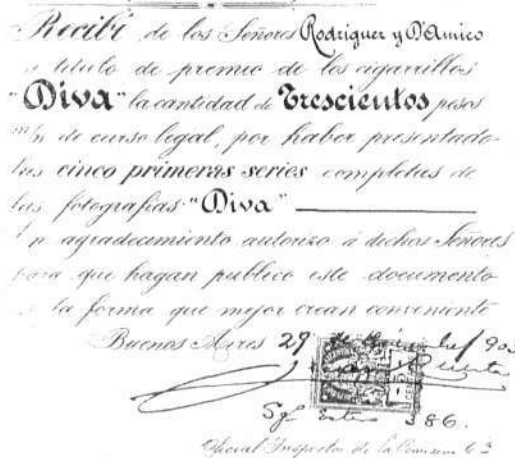 Recibí de los Señores Rodriguez y D'Amico
a titulo de premio de los cigarrillos
"Diva" la cantidad de Trescientos pesos
m/n de curso legal, por haber presentado
las cinco primeras series completas de
las fotografias "Diva"
En agradecimiento autorizo á dichos Señores
para que hagan publico este documento
la forma que mejor crean conveniente
Buenos Aires 29 de 903
Sgo Estero 386.
Oficial Inspector de la Comisaria 6ª